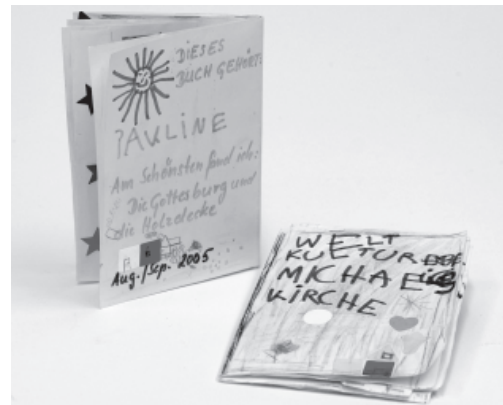 DIESES
BUCH GEHÖRT:
PAULINE
Am Schönsten fand ich:
Die Gottesburg und
die Holzdecke
Aug./Sep. 2005
WELT
KULTUR
MICHAELIS
KIRCHE